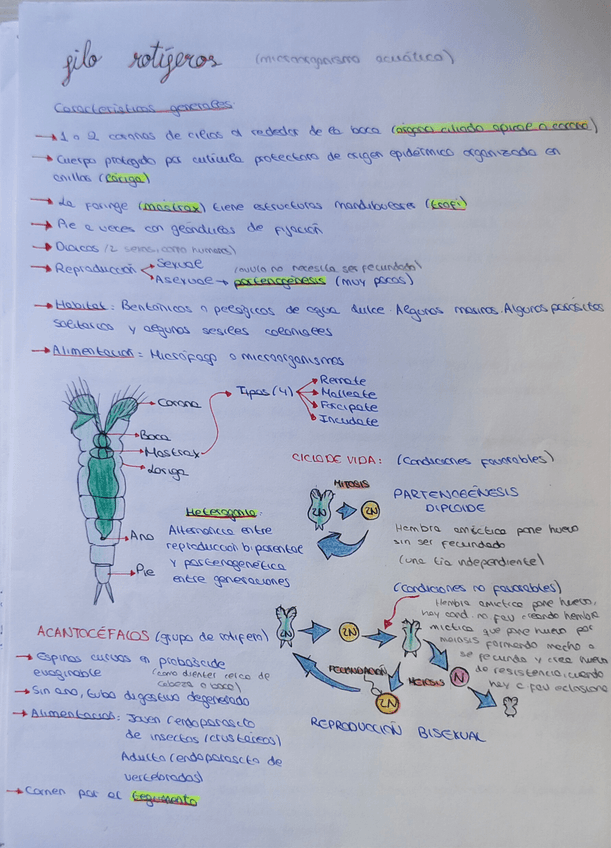 filo rotíferos (microorganismo acuático)
Características generales:
→ 1 o 2 coronas de cilios al rededor de la boca (órgano ciliado apical o corona)
→ Cuerpo protegido por cutícula protectora de origen epidérmico organizada en
anillos (Lóriga)
→ La faringe (mastrax) tiene estructuras mandibulares (trofi)
→ Pie a veces con glándulas de fijación
→ Dioicos (2 sexos, como humanos)
→ Reproducción Sexual (óvulo no necesita ser fecundado)
Asexual → partenogénesis (muy pocos)
→ Hábitat: Bentónicos o pelágicos de agua dulce. Algunos marinos. Algunos parásitos
solitarios y algunos sésiles coloniales
→ Alimentación: Micrófago o microorganismos
Corona
Boca
Mastrax
Loriga
Ano
Pie
Tipos (4)
Ramate
Maleate
Forcipate
Incudate
Heterogonia:
Alternancia entre
reproducción biparental
y partenogenética
entre generaciones
CICLO DE VIDA: (Condiciones favorables)
MITOSIS
2N
2N
PARTENOGÉNESIS
DIPLOIDE
Hembra amíctica pone huevo
sin ser fecundado
(una tía independiente)
(Condiciones no favorables)
Hembra amíctica pone huevo,
hay cond. no fav creando hembra
míctica que pone huevo por
meiosis formando macho o
se fecunda y crea huevo
de resistencia, cuando
hay c fav eclosiona
2N
2N
FECUNDACIÓN
MEIOSIS
N
2N
REPRODUCCIÓN BISEXUAL
ACANTOCÉFALOS (grupo de rotífero)
→ Espinas curvas en probóscide
evaginable (como dientes cerca de
cabeza o boca)
→ Sin ano, tubo digestivo degenerado
→ Alimentación: Joven (endoparásito
de insectos/crustáceos)
Adulto (endoparásito de
vertebrados)
→ Comen por el tegumento